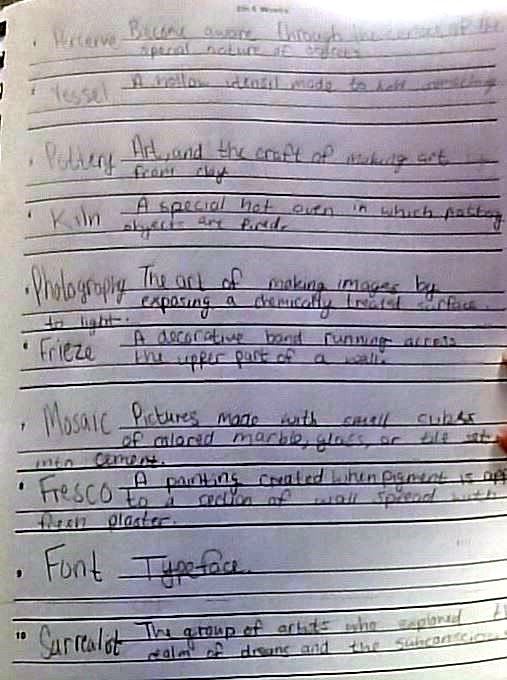 Perceive Become aware through the senses of the
special nature of objects
Vessel A hollow utensil made to hold something
Pottery Art, and the craft of making art
from clay
Kiln A special hot oven in which pottery
objects are fired.
Photography The art of making images by
exposing a chemically treated surface
to light.
Frieze A decorative band running across
the upper part of a wall.
Mosaic Pictures made with small cubes
of colored marble, glass, or tile set
into cement.
Fresco A painting created when pigment is
to a section of wall spread with
fresh plaster.
Font Typeface.
10 Surrealist The group of artists who explored
realm of dreams and the subconscious